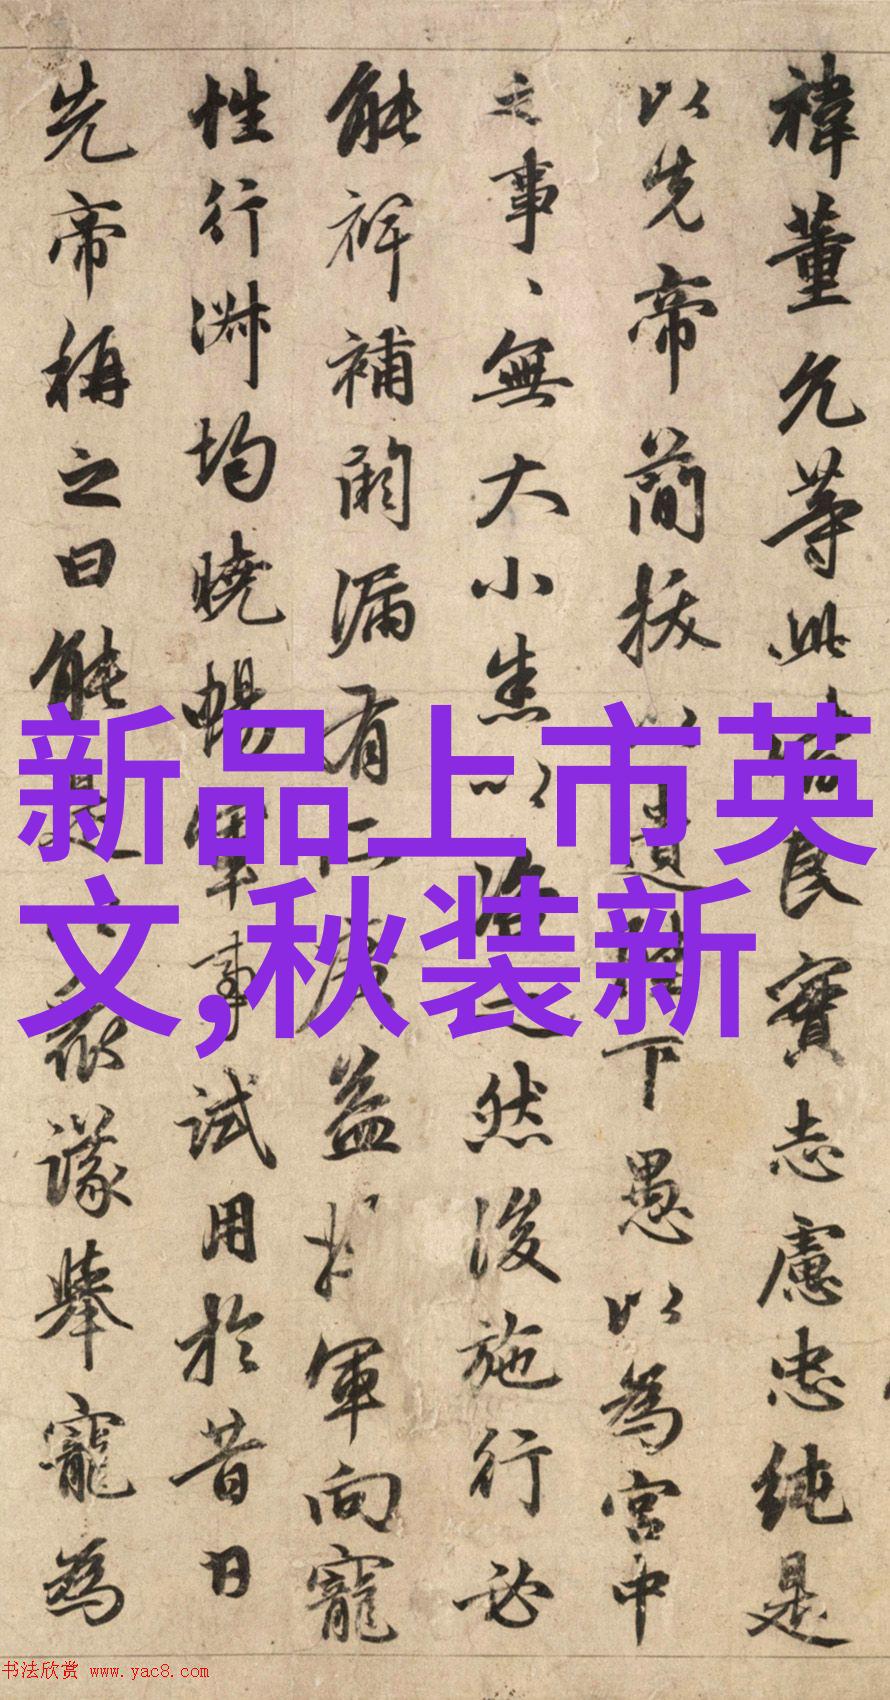 禕董允等此皆良實志慮忠純是
以先帝簡拔以遺陛下愚以為宮中
之事、無大小悉以咨之然後施行必
能裨補闕漏有所廣益将軍向寵
性行淋均曉暢軍事試用於昔日
先帝稱之曰能是以衆議舉寵為
新品上市英
文,秋装新
书法欣赏 www.yac8.com